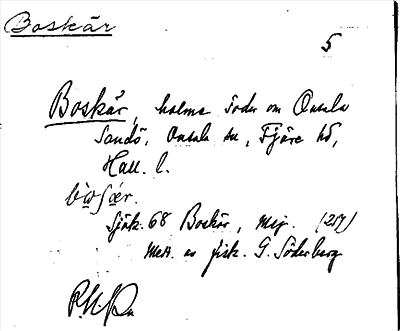 Boskär
5
Boskär, holme söder om Onsala
Sandö, Onsala sn, Fjäre hd,
Hall. l.
Sjök. 68 Boskär, Mej. (257)
Medd. av fisk. G. Söderberg